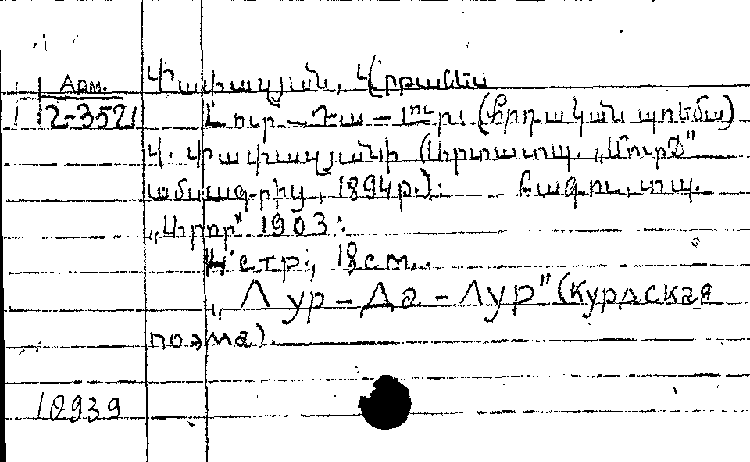 Փափազյան, Վրթանես
Арм.
12-3521
Լուր-Դա-Լուր. (Քրդական պոեմա)
Վ. Փափազյանի (Արտատպ. „Մուրճ"
ամսագրից, 1894թ.): Բագու, տպ.
„Արոր" 1903:
стр., 18 cm.
„Лур-Да-Лур" (Курдская
поэма).
10939